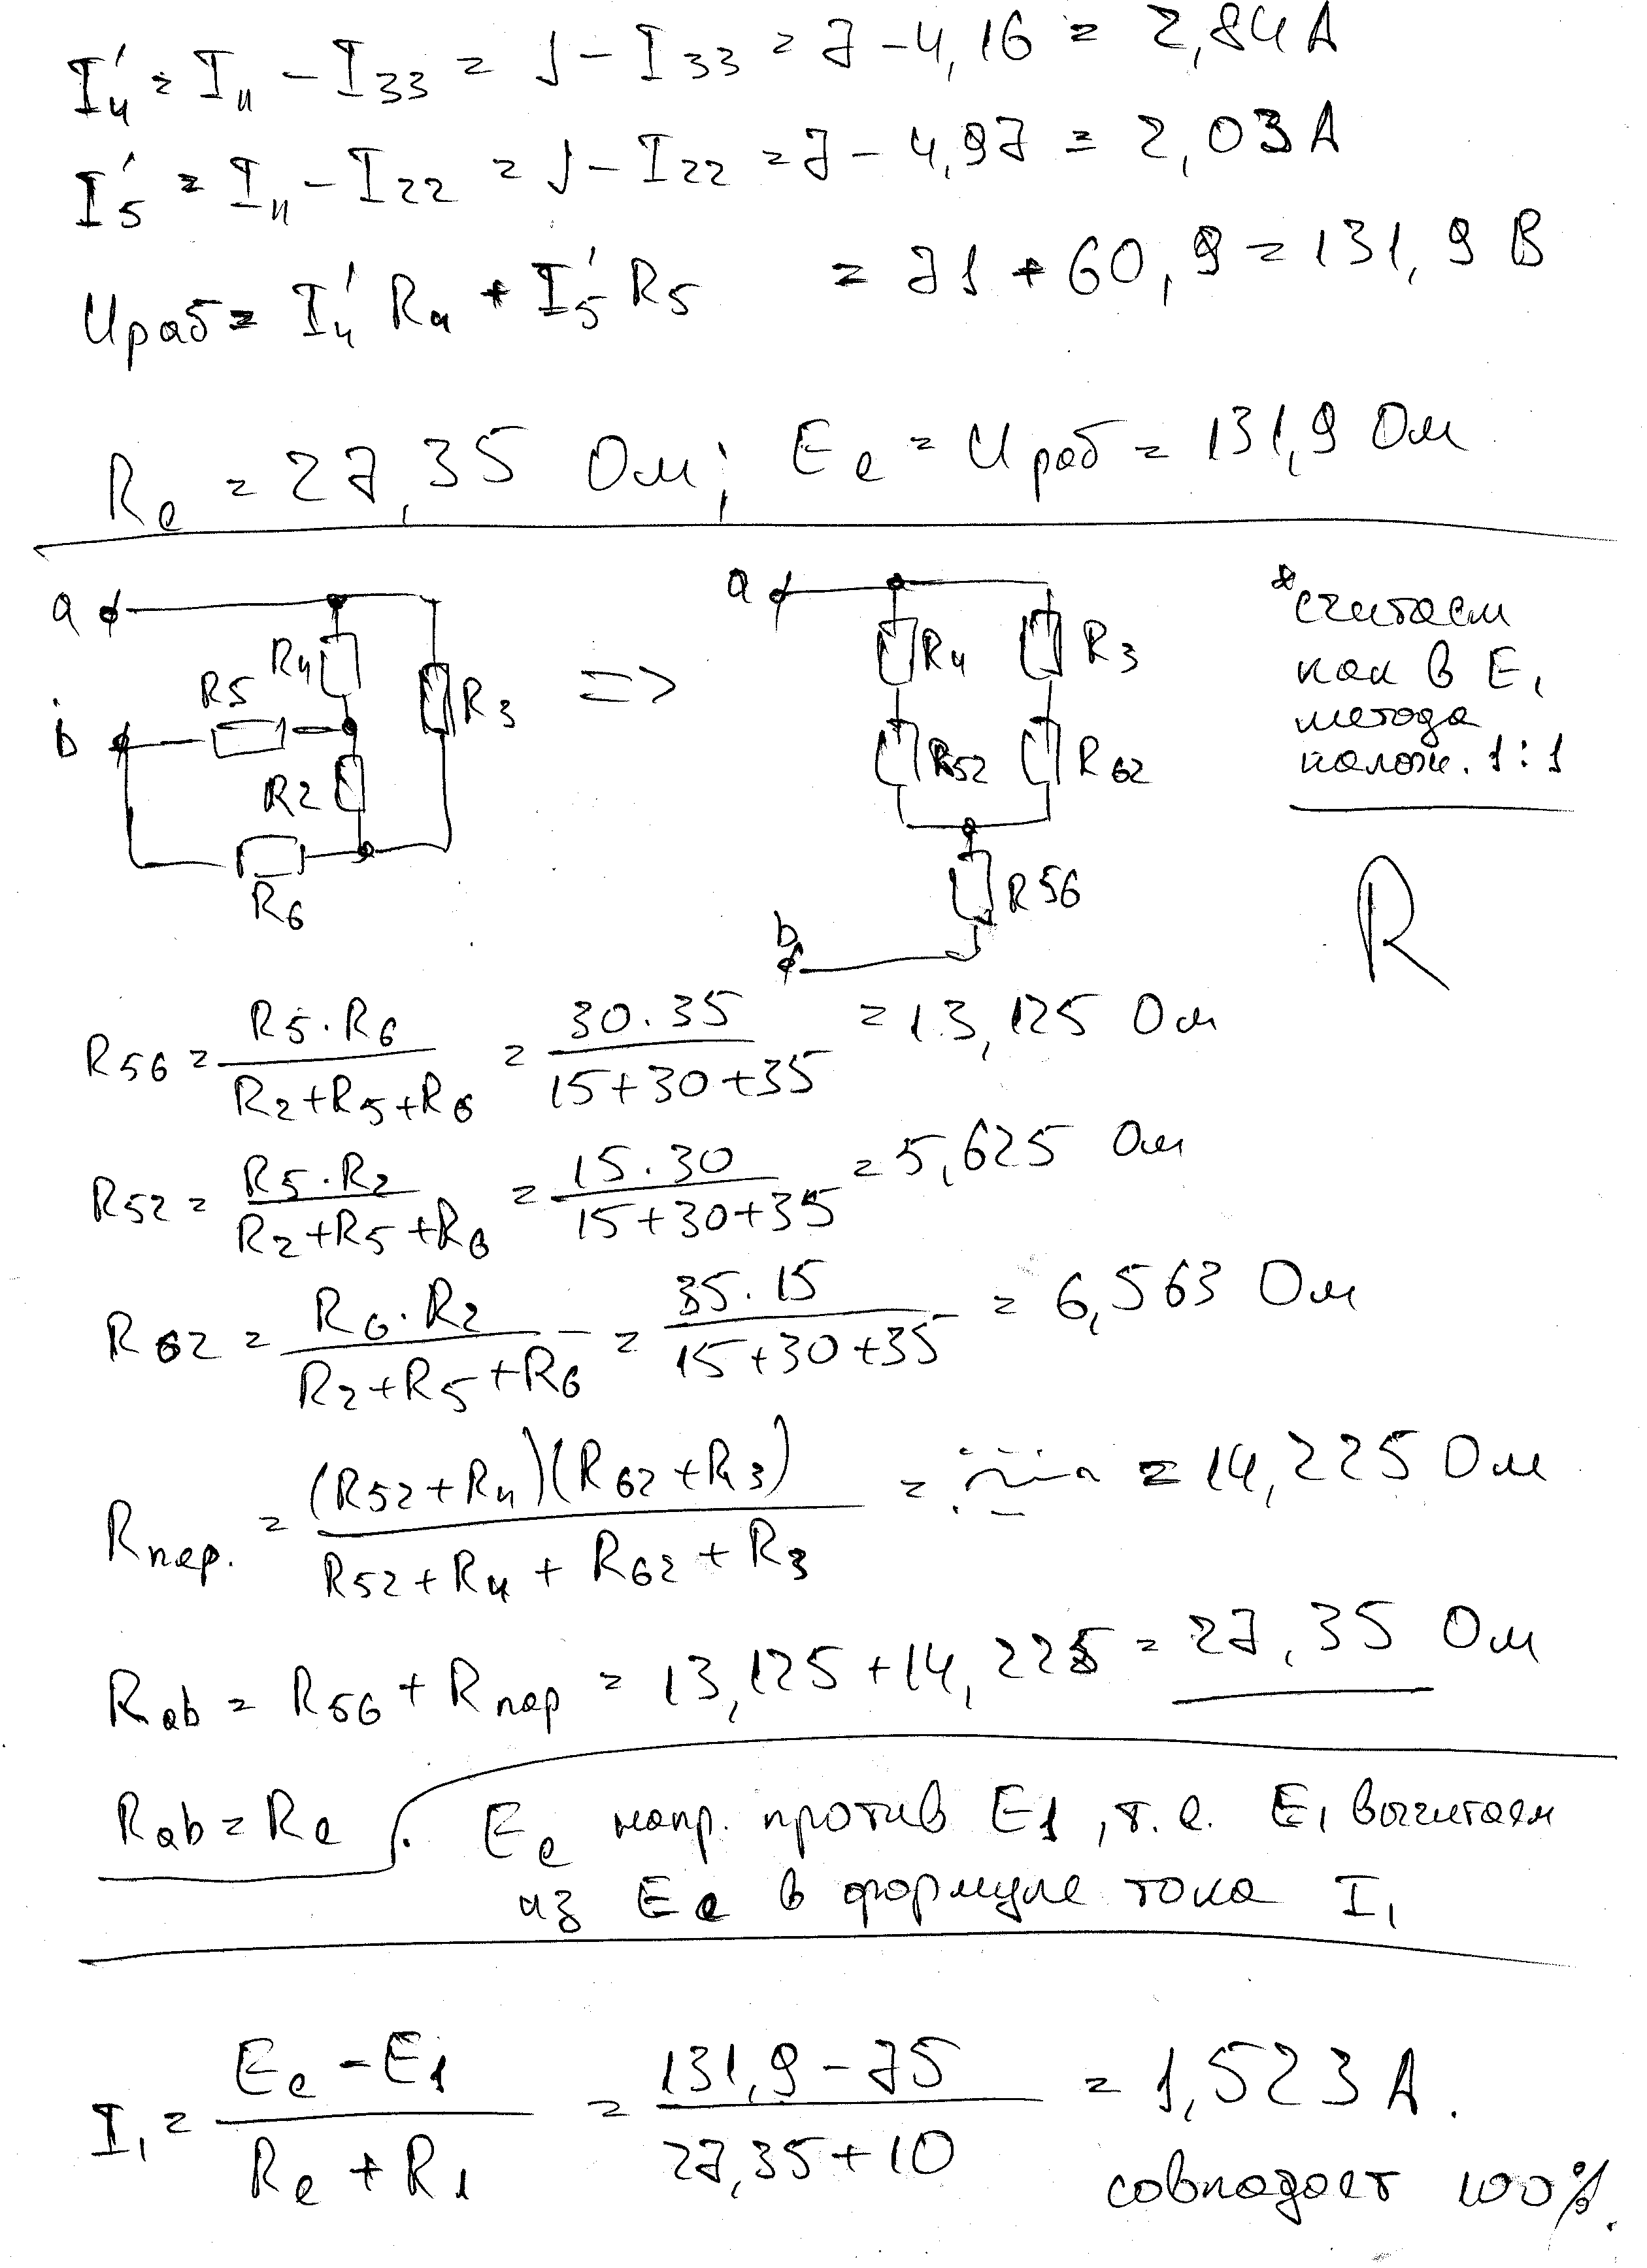 I'4 = I4 - I33 = J - I33 = 7 - 4,16 = 2,84 A
I'5 = I4 - I22 = J - I22 = 7 - 4,97 = 2,03 A
Uраб = I'4 R4 + I'5 R5 = 71 + 60,9 = 131,9 В
Re = 27,35 Ом; Ee = Uраб = 131,9 Ом
a R4 R5 R3 b R2 R6
=>
a R4 R3 R52 R62 R56 b
* считаем
как в E1
метода
налож. 1:1
R
R56 = R5·R6 / (R2+R5+R6) = 30·35 / (15+30+35) = 13,125 Ом
R52 = R5·R2 / (R2+R5+R6) = 15·30 / (15+30+35) = 5,625 Ом
R62 = R6·R2 / (R2+R5+R6) = 35·15 / (15+30+35) = 6,563 Ом
Rпар. = (R52+R4)(R62+R3) / (R52+R4+R62+R3) = = 14,225 Ом
Rab = R56 + Rпар = 13,125 + 14,225 = 27,35 Ом
Rab = Re . Ee напр. против E1, т.е. E1 вычитаем
из Ee в формуле тока I1
I1 = (Ee - E1) / (Re + R1) = (131,9 - 75) / (27,35 + 10) = 1,523 A.
совпадает 100%.